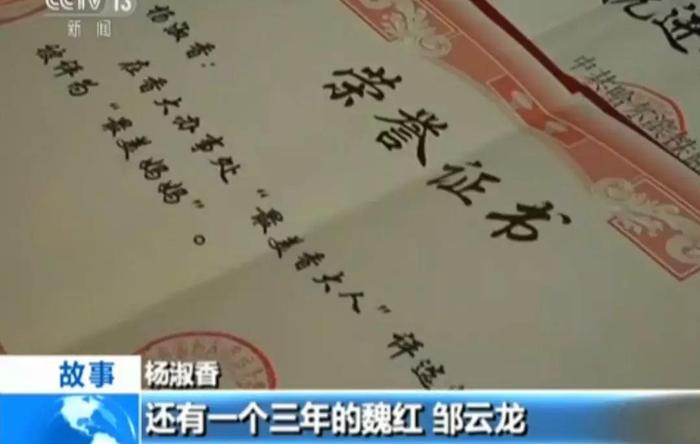 CCTV 13
新闻
荣誉证书
杨淑香：
在香大办事处“最美香大人”评选
被评为“最美妈妈”。
先进
中共哈尔滨
故事
杨淑香
还有一个三年的魏红 邹云龙